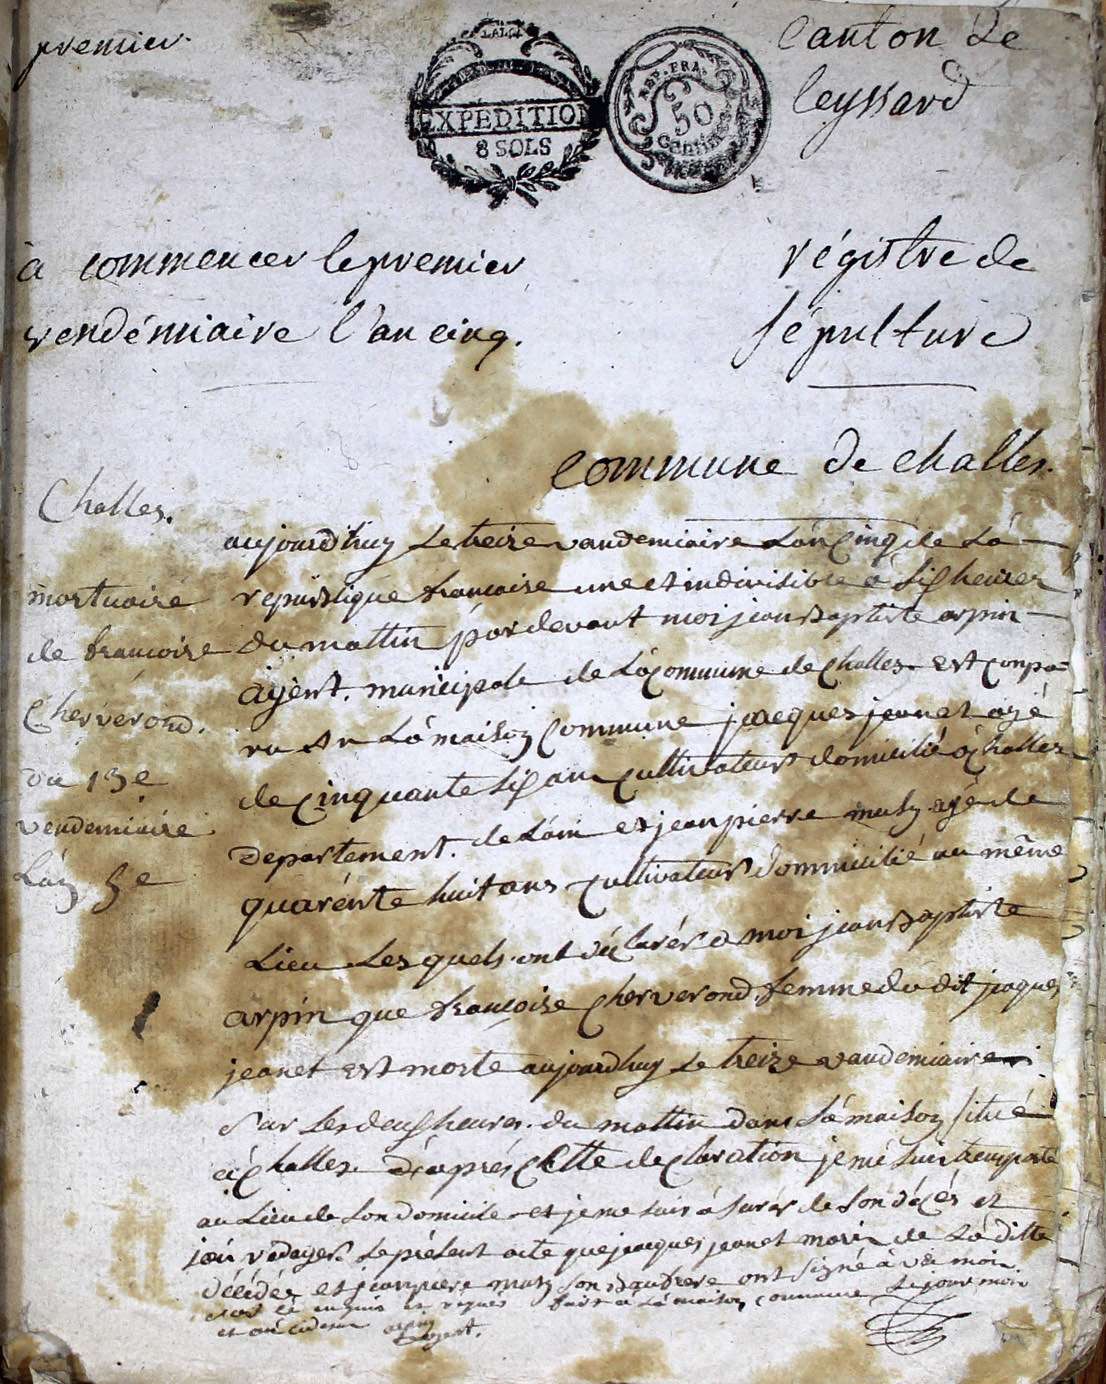 premier.
Canton de
leyssard
EXPEDITION
8 SOLS
REP. FRA.
50
Centim
à commencer le premier
vendémiaire l'an cinq.
régistre de
sépulture
Commune de challes.
Challes.
mortuaire
de francoise
Cherverond.
du 13e
vendemiaire
Lán 5e
aujourd'huy Le treize vandemiaire Lán Cinq de Lá
republique francoise une et indivisible á six heures
du mattin pardevant moi jean Baptiste arpin
ágent. municipale de Lá Commune de Challes. Est Compa
ru En Lá maison Commune jacques jeanet agé
de Cinquante six ans Cultivateur domicilié á Challes
departement. de Láin et jean pierre musy agé de
quarénte huit ans Cultivateur dommicilié au même
Lieu Les quels ont déClarér a moi jean Baptiste
arpin que francoise Cherverond. femme du dit jaques
jeanet Est morte aujourdhuy Le treize vandemiaire
Sur Les deux heures. du mattin dans Sá maison situé
á Challes. d'áprés Cette deClaration je mé suis transporté
au Lieu de Son domicile et je me suis ásurér de Son déCés et
jái rédiger Le présent acte que jacques jeanet mari de Lá ditte
décédée et jean pierre musy son Baufrere ont signé avec moi
fait a Lá maison commune Le jour mois
et an cidesus arpin
agent.